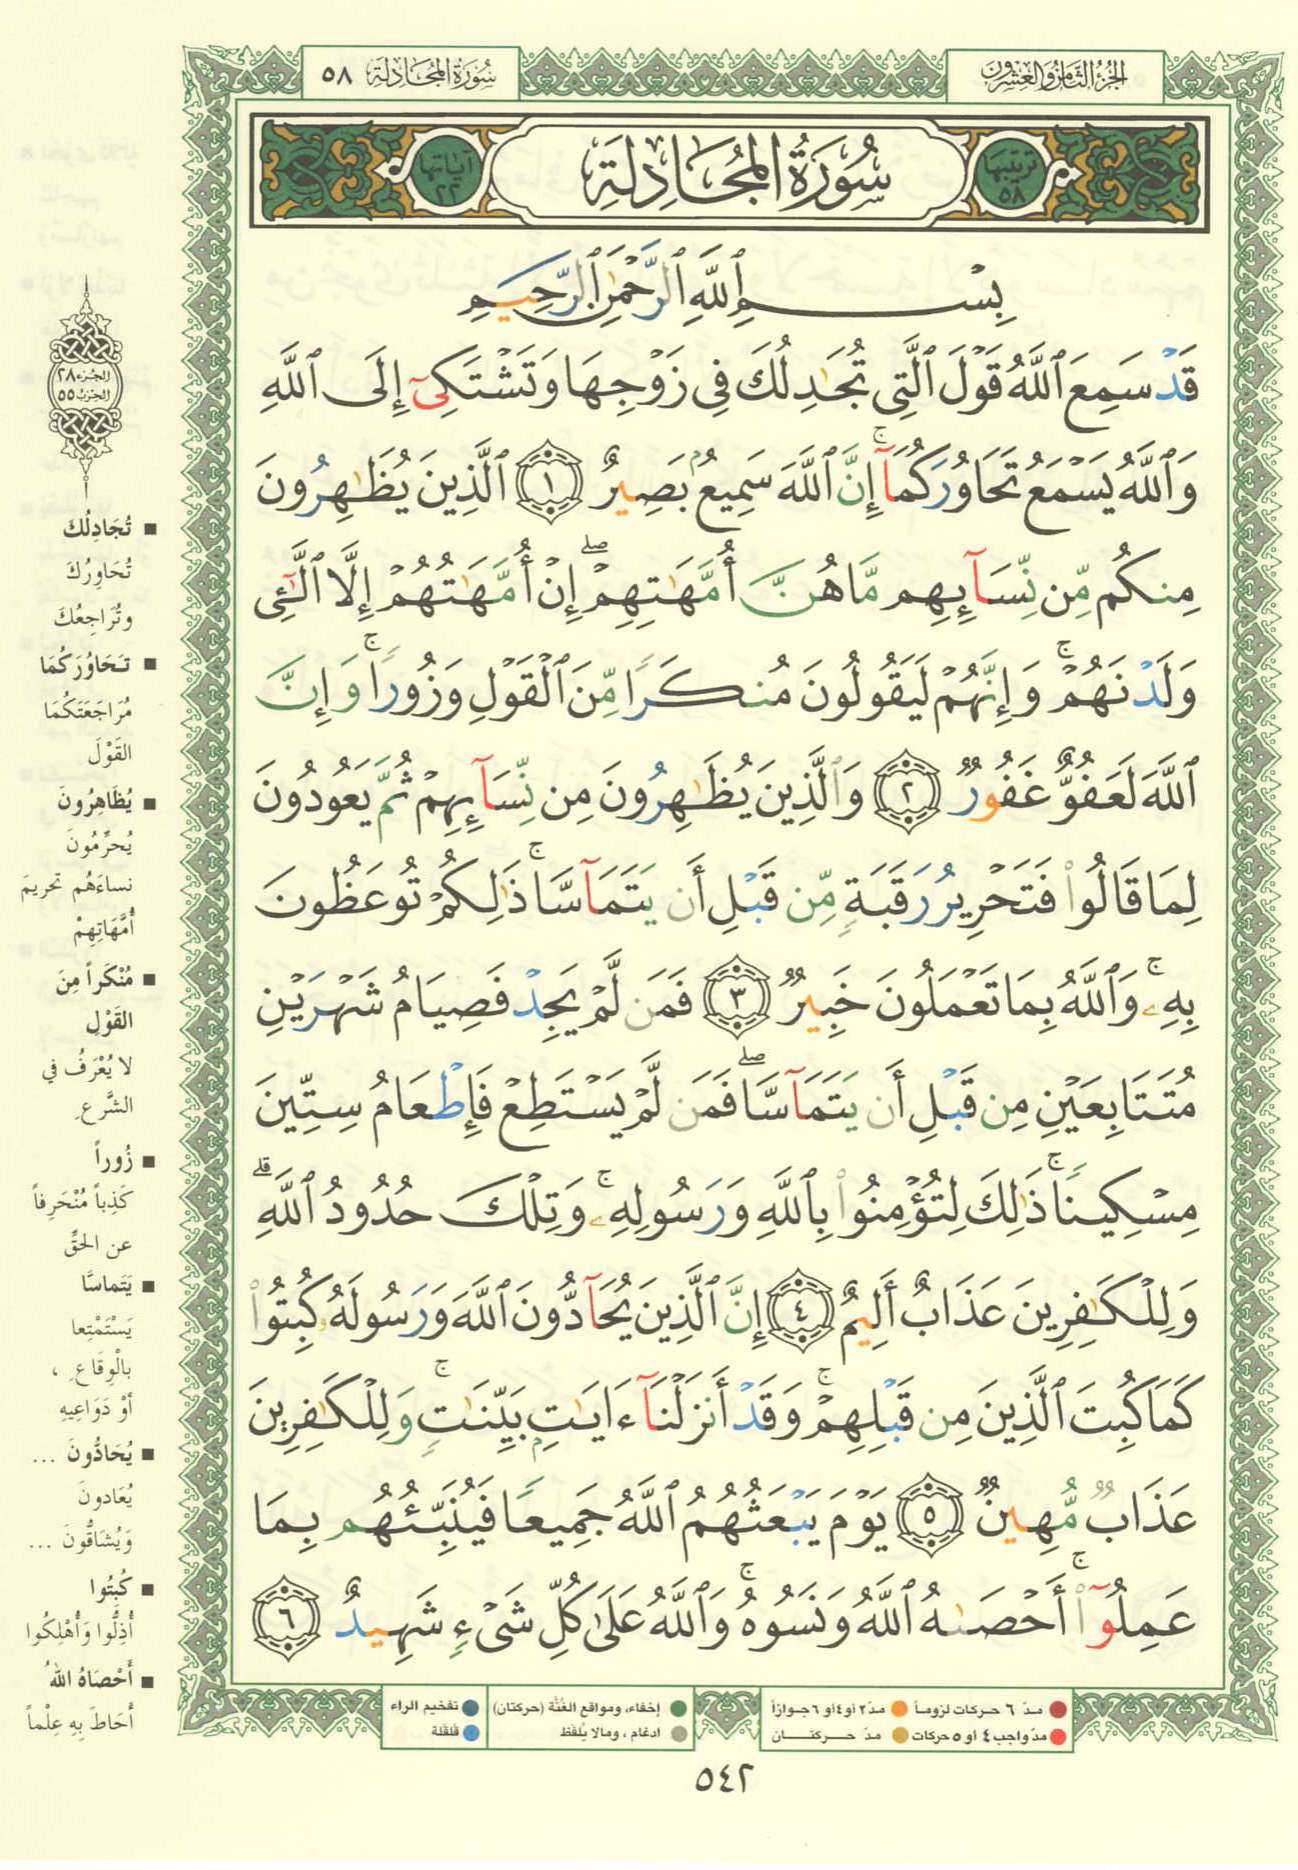 الجزء الثامن والعشرون
سورة المجادلة ٥٨
ترتيبها ٥٨
سُورَةُ المُجَادِلَةِ
آياتها ٢٢
بِسْمِ ٱللَّهِ ٱلرَّحْمَٰنِ ٱلرَّحِيمِ
قَدْ سَمِعَ ٱللَّهُ قَوْلَ ٱلَّتِى تُجَٰدِلُكَ فِى زَوْجِهَا وَتَشْتَكِىٓ إِلَى ٱللَّهِ
وَٱللَّهُ يَسْمَعُ تَحَاوُرَكُمَآ ۚ إِنَّ ٱللَّهَ سَمِيعٌۢ بَصِيرٌ ١ ٱلَّذِينَ يُظَٰهِرُونَ
مِنكُم مِّن نِّسَآئِهِم مَّا هُنَّ أُمَّهَٰتِهِمْ ۖ إِنْ أُمَّهَٰتُهُمْ إِلَّا ٱلَّٰٓـِٔى
وَلَدْنَهُمْ ۚ وَإِنَّهُمْ لَيَقُولُونَ مُنكَرًا مِّنَ ٱلْقَوْلِ وَزُورًا ۚ وَإِنَّ
ٱللَّهَ لَعَفُوٌّ غَفُورٌ ٢ وَٱلَّذِينَ يُظَٰهِرُونَ مِن نِّسَآئِهِمْ ثُمَّ يَعُودُونَ
لِمَا قَالُوا۟ فَتَحْرِيرُ رَقَبَةٍ مِّن قَبْلِ أَن يَتَمَآسَّا ۚ ذَٰلِكُمْ تُوعَظُونَ
بِهِۦ ۚ وَٱللَّهُ بِمَا تَعْمَلُونَ خَبِيرٌ ٣ فَمَن لَّمْ يَجِدْ فَصِيَامُ شَهْرَيْنِ
مُتَتَابِعَيْنِ مِن قَبْلِ أَن يَتَمَآسَّا ۖ فَمَن لَّمْ يَسْتَطِعْ فَإِطْعَامُ سِتِّينَ
مِسْكِينًا ۚ ذَٰلِكَ لِتُؤْمِنُوا۟ بِٱللَّهِ وَرَسُولِهِۦ ۚ وَتِلْكَ حُدُودُ ٱللَّهِ ۗ
وَلِلْكَٰفِرِينَ عَذَابٌ أَلِيمٌ ٤ إِنَّ ٱلَّذِينَ يُحَآدُّونَ ٱللَّهَ وَرَسُولَهُۥ كُبِتُوا۟
كَمَا كُبِتَ ٱلَّذِينَ مِن قَبْلِهِمْ ۚ وَقَدْ أَنزَلْنَآ ءَايَٰتٍۭ بَيِّنَٰتٍ ۚ وَلِلْكَٰفِرِينَ
عَذَابٌ مُّهِينٌ ٥ يَوْمَ يَبْعَثُهُمُ ٱللَّهُ جَمِيعًا فَيُنَبِّئُهُم بِمَا
عَمِلُوٓا۟ ۚ أَحْصَىٰهُ ٱللَّهُ وَنَسُوهُ ۚ وَٱللَّهُ عَلَىٰ كُلِّ شَىْءٍ شَهِيدٌ ٦
الجزء ٢٨
الحزب ٥٥
■ تُجَادِلُكَ
تُحَاوِرُكَ
وتُرَاجِعُكَ
■ تَحَاوُرَكُمَا
مُرَاجَعَتَكُمَا
القَوْلَ
■ يُظَاهِرُونَ
يُحرِّمُونَ
نساءَهُم تحريمَ
أُمَّهَاتِهِمْ
■ مُنْكَراً مِنَ
القَوْلِ
لا يُعْرَفُ في
الشَّرع
■ زُوراً
كَذِباً مُنْحَرِفاً
عن الحَقِّ
■ يَتَماسَّا
يَسْتَمْتِعا
بالْوِقَاعِ ،
أوْ دَوَاعِيهِ
■ يُحَادُّونَ ...
يُعَادونَ
وَيُشَاقُّونَ ...
■ كُبِتُوا
أُذِلُّوا وَأُهْلِكُوا
■ أَحْصَاهُ اللهُ
أَحَاطَ بِهِ عِلْماً
مدّ ٦ حركات لزوماً مدّ ٢ أو ٤ أو ٦ جوازاً
مدّ واجب ٤ أو ٥ حركات مدّ حركتان
إخفاء، ومواقع الغُنَّة (حركتان)
ادغام ، ومالا يُلفَظ
تفخيم الراء
قلقلة
٥٤٢